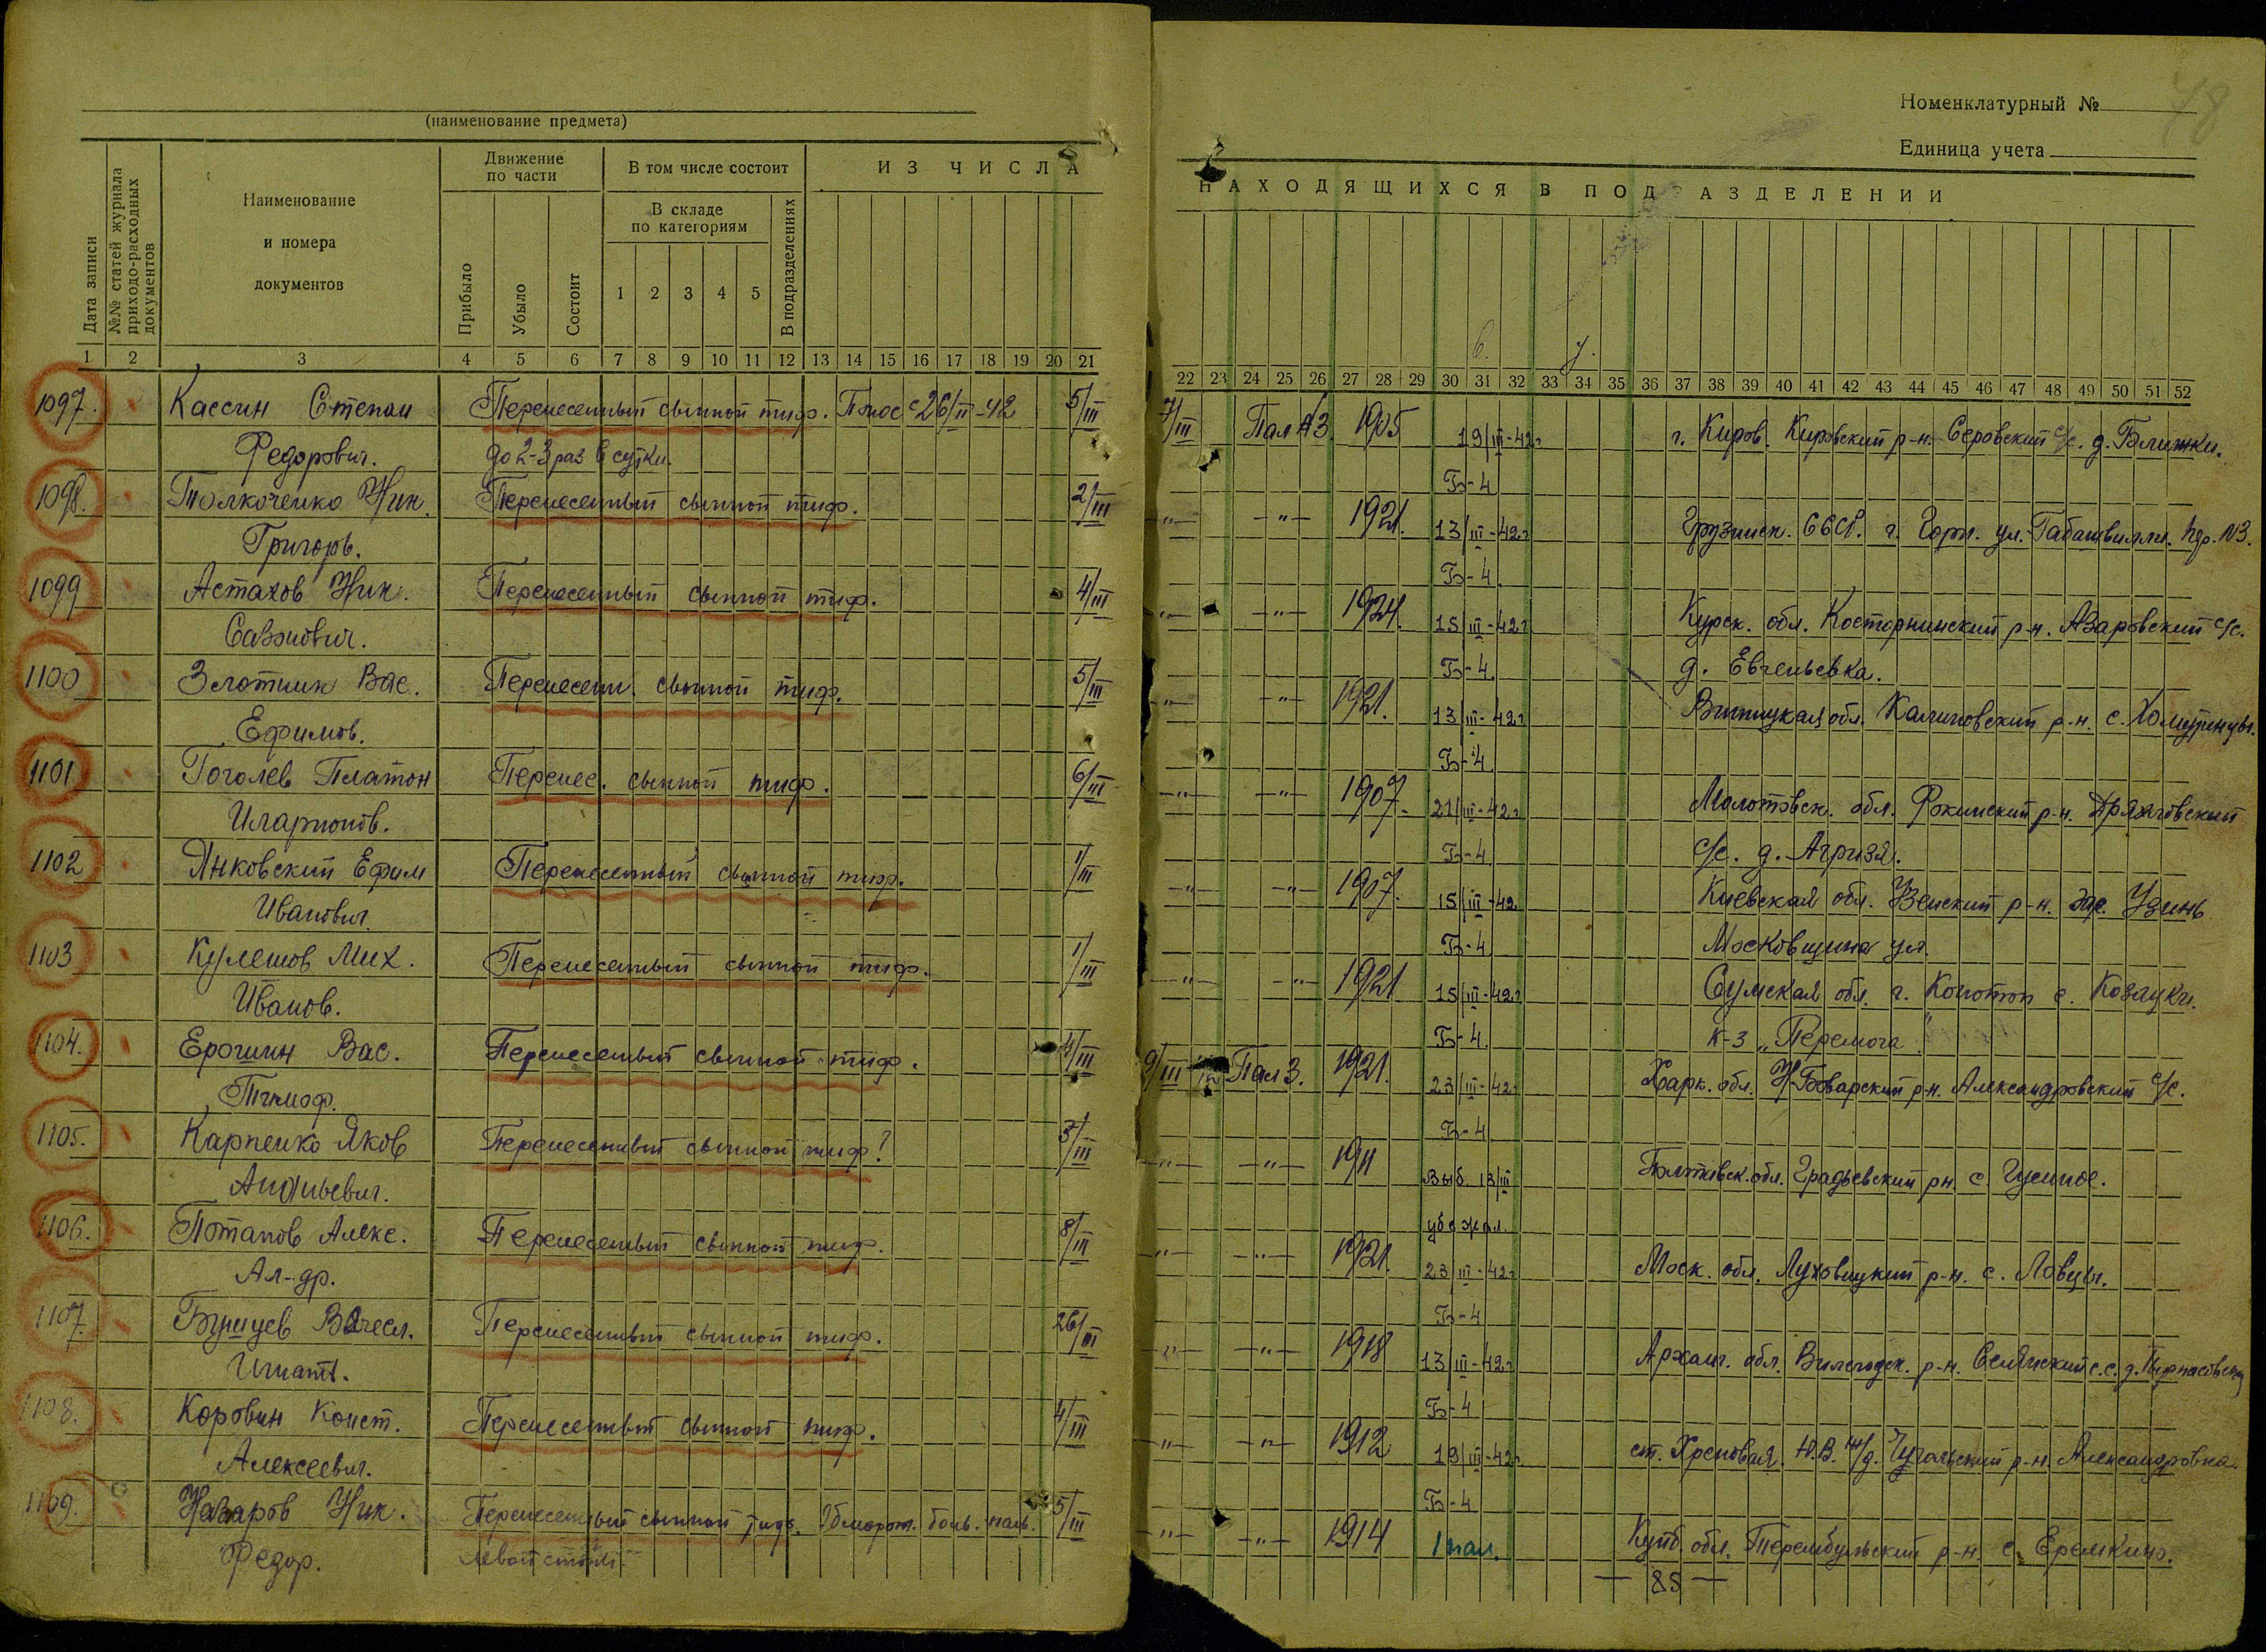 (наименование предмета)
Номенклатурный №
48
Единица учета
Дата записи
№№ статей журнала приходо-расходных документов
Наименование
и номера
документов
Движение
по части
Прибыло
Убыло
Состоит
В том числе состоит
В складе
по категориям
1 2 3 4 5
В подразделениях
ИЗ ЧИСЛА
НАХОДЯЩИХСЯ В ПОДРАЗДЕЛЕНИИ
1 2 3 4 5 6 7 8 9 10 11 12 13 14 15 16 17 18 19 20 21
22 23 24 25 26 27 28 29 30 31 32 33 34 35 36 37 38 39 40 41 42 43 44 45 46 47 48 49 50 51 52
1097. Кассин Степан Перенесенный сыпной тиф. Понос с 26/II-42 5/III 7/III Пал №3 1905 19/III-42г г. Киров. Кировский р-н. Серовский с/с. д.
Федорович. до 2-3 раз в сутки. Б-4
1098. Толкоченко Ник. Перенесенный сыпной тиф. 2/III -"- -"- 1921. 13/III-42г Грузинск. ССР. г. Гори. ул. Габашвилли. №3.
Григорь. Б-4
1099 Астахов Ник. Перенесенный сыпной тиф. 4/III -"- -"- 1924. 15/III-42г Курск. обл. Касторнинский р-н. Азаровский с/с.
Сазонович. Б-4. д. Евгеньевка.
1100 Золотник Вас. Перенесен. сыпной тиф. 5/III -"- -"- 1921. 13/III-42г Винницкая обл. Калиновский р-н. с.
Ефимов. Б-4.
1101 Гоголев Платон Перенес. сыпной тиф. 6/III -"- -"- 1907. 21/III-42г Молотовск. обл. р-н.
Иларионов. Б-4 с/с. д. Агризя.
1102 Янковский Ефим Перенесенный сыпной тиф. 1/III -"- -"- 1907. 15/III-42 Киевская обл. Узенский р-н. Узинь
Иванович. Б-4 Московщина ул.
1103 Кулешов Мих. Перенесенный сыпной тиф. 1/III -"- -"- 1921 15/III-42г Сумская обл. г. Конотоп с. Козацки.
Иванов. Б-4. к-з „Перемога"
1104. Ерошин Вас. Перенесенный сыпной тиф. 4/III 9/III Пал 3. 1921. 23/III-42г Харк. обл. р-н. Александровский с/с.
Тимоф. Б-4
1105. Карпенко Яков Перенесенный сыпной тиф? 5/III -"- -"- 1911 Выб. 13/III Полтавск. обл. Градьевский р-н. с. Гусиное.
Ананьевич. убежал.
1106. Потапов Алекс. Перенесенный сыпной тиф. 8/III -"- -"- 1921. 23/III-42г Моск. обл. Луховицкий р-н. с. Ловцы.
Ал-др. Б-4
1107. Перенесенный сыпной тиф. 26/III -"- -"- 1918 13/III-42г Арханг. обл. Вилегодск. р-н. с.с. д.
Игнат. Б-4
1108. Коровин Конст. Перенесенный сыпной тиф. 4/III -"- -"- 1912 19/III-42г ст. Хреновая Ю.В. ж/д. р-н. Александровка.
Алексеевич. Б-4
1109. Назаров Ник. Перенесенный сыпной тиф. Обморож. боль. паль. 5/III -"- -"- 1914 1 пал. Куйб. обл. р-н. с. Еремкино.
Федор. левой стопы.
— 85 —